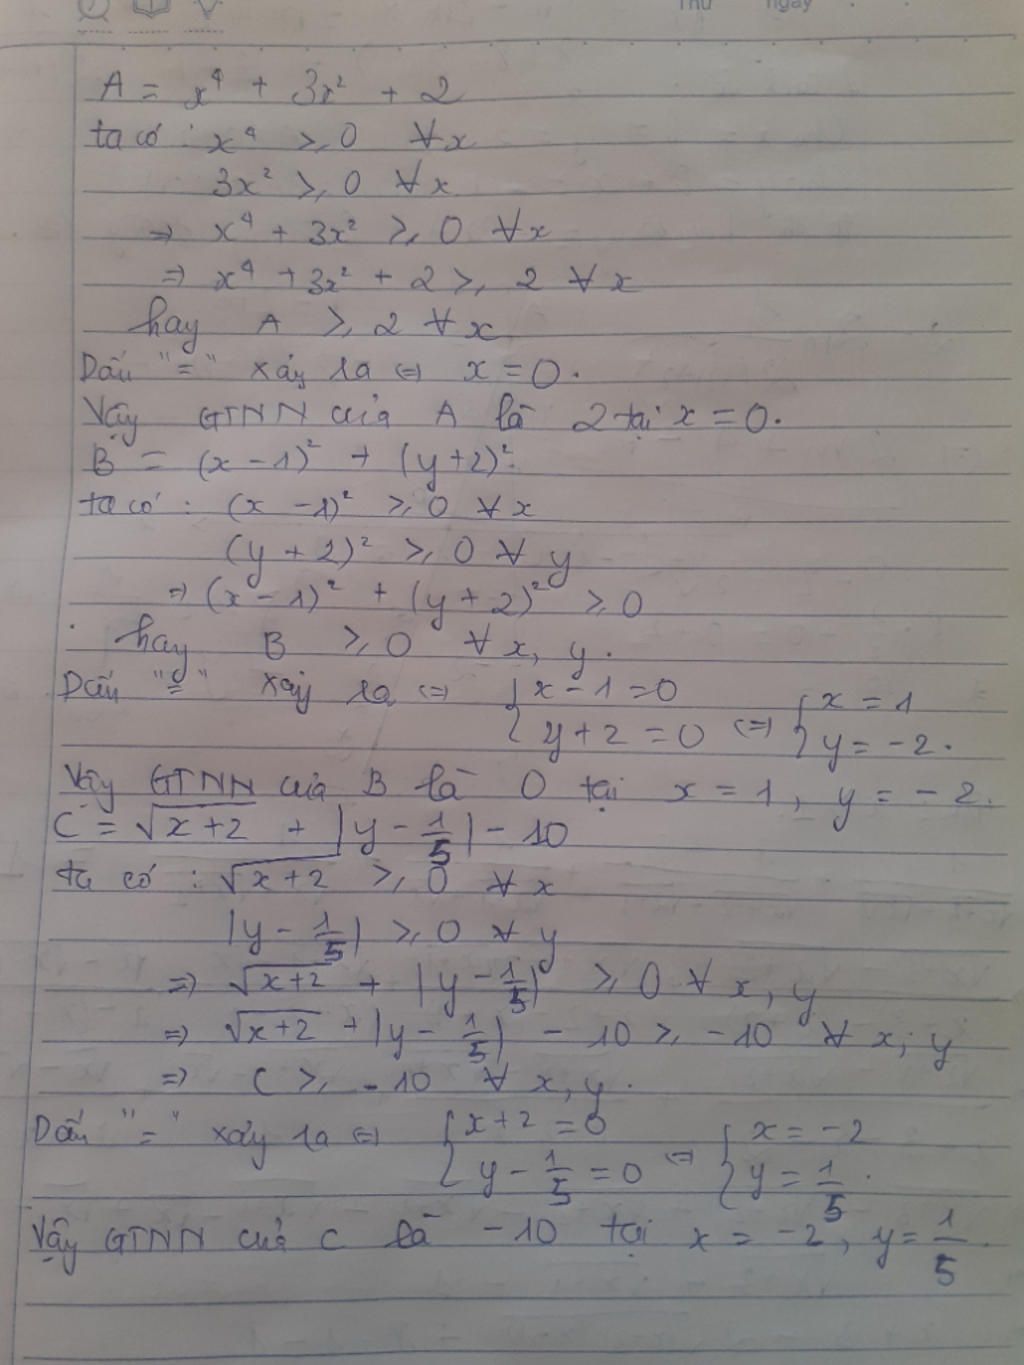 Thứ ngày
A = x⁴ + 3x² + 2
ta có : x⁴ ≥ 0 ∀x
3x² ≥ 0 ∀x
⇒ x⁴ + 3x² ≥ 0 ∀x
⇒ x⁴ + 3x² + 2 ≥ 2 ∀x
hay A ≥ 2 ∀x
Dấu "=" xảy ra ⇔ x = 0.
Vậy GTNN của A là 2 tại x = 0.
B = (x - 1)² + (y + 2)².
ta có : (x - 1)² ≥ 0 ∀x
(y + 2)² ≥ 0 ∀y
⇒ (x - 1)² + (y + 2)² ≥ 0
hay B ≥ 0 ∀x, y.
Dấu "=" xảy ra ⇔ { x - 1 = 0 ; y + 2 = 0 ⇔ { x = 1 ; y = -2.
Vậy GTNN của B là 0 tại x = 1, y = -2.
C = √(x+2) + |y - 1/5| - 10
ta có : √(x+2) ≥ 0 ∀x
|y - 1/5| ≥ 0 ∀y
⇒ √(x+2) + |y - 1/5| ≥ 0 ∀x, y
⇒ √(x+2) + |y - 1/5| - 10 ≥ -10 ∀x, y
⇒ C ≥ -10 ∀x, y.
Dấu "=" xảy ra ⇔ { x + 2 = 0 ; y - 1/5 = 0 ⇔ { x = -2 ; y = 1/5.
Vậy GTNN của C là -10 tại x = -2, y = 1/5.